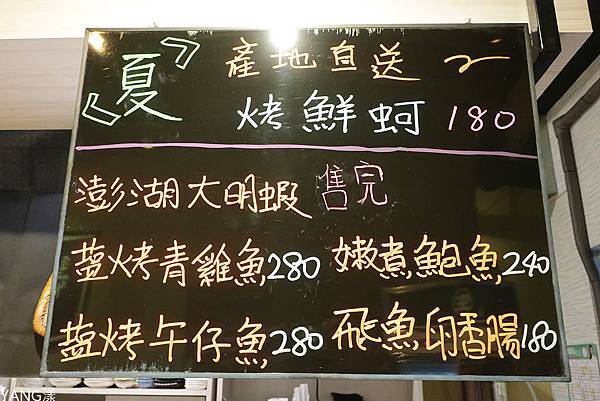 《夏》
產地直送
烤鮮蚵 180
澎湖大明蝦 售完
鹽烤青雞魚280 嫩煮鮑魚240
鹽烤午仔魚280 飛魚卵香腸180
YANG漾